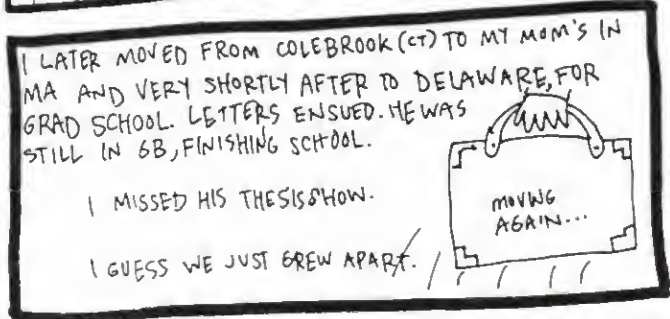 I LATER MOVED FROM COLEBROOK (CT) TO MY MOM'S IN
MA AND VERY SHORTLY AFTER TO DELAWARE, FOR
GRAD SCHOOL. LETTERS ENSUED. HE WAS
STILL IN GB, FINISHING SCHOOL.
I MISSED HIS THESIS SHOW.
I GUESS WE JUST GREW APART.
MOVING
AGAIN...